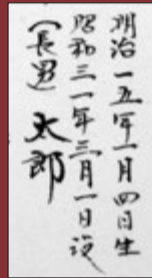 明治一五年一月四日生
昭和三一年三月一日没
(長男) 太郎